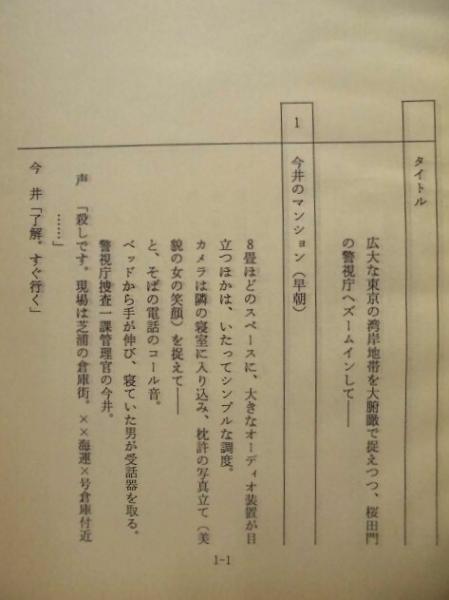 タイトル
広大な東京の湾岸地帯を大俯瞰で捉えつつ、桜田門
の警視庁へズームインして──
1 今井のマンション（早朝）
8畳ほどのスペースに、大きなオーディオ装置が目
立つほかは、いたってシンプルな調度。
カメラは隣の寝室に入り込み、枕許の写真立て（美
貌の女の笑顔）を捉えて──
と、そばの電話のコール音。
ベッドから手が伸び、寝ていた男が受話器を取る。
警視庁捜査一課管理官の今井。
声「殺しです。現場は芝浦の倉庫街。××海運×号倉庫付近
……」
今井「了解。すぐ行く」
1-1